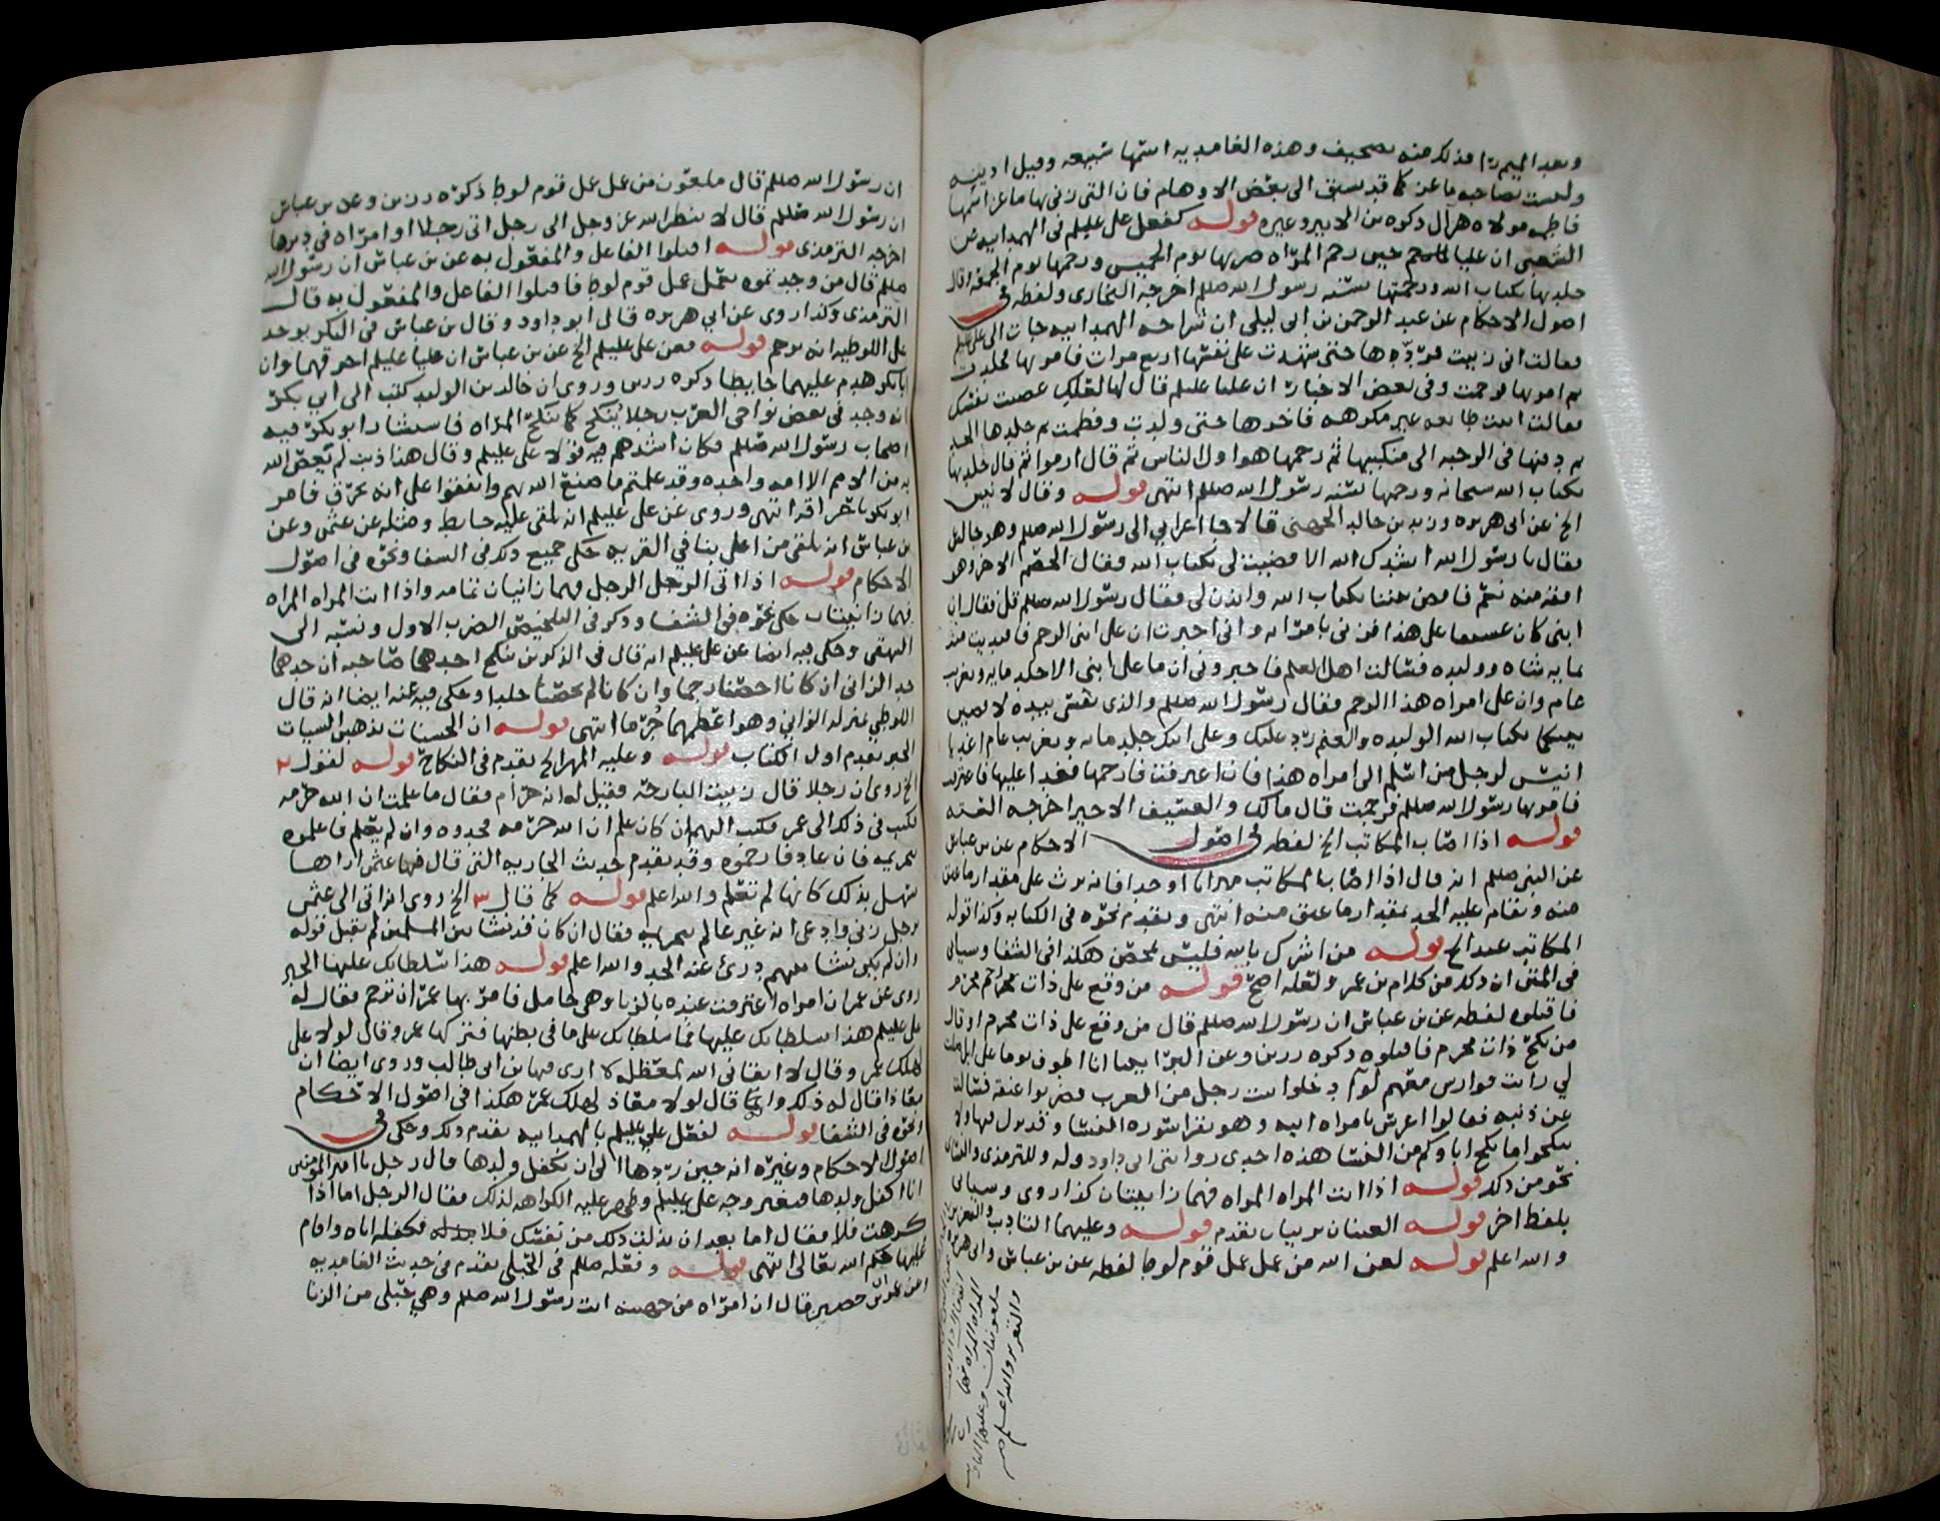 وبعد الميم راء فذلك منه تصحيف وهذه الغامديه اسمها سبيعه وقيل ادينه
وليست بصاحبه ماعز كما قد سبق الى بعض الاوهام فان التي زنى بها ماعز اسمها
فاطمه مولاه هزال ذكره بن الاثير وغيره قوله كفعل علي عليلم في الهمدانيه عن
الشعبي ان عليا عليلم حين رجم المراه ضربها يوم الخميس ورجمها يوم الجمعه وقال
جلدتها بكتاب الله ورجمتها بسنه رسول الله صللم اخرجه البخاري ولفظه في
اصول الاحكام عن عبد الرحمن بن ابي ليلى ان شراحه الهمدانيه جات الى علي عليلم
فقالت اني زنيت فردّها حتى شهدت على نفسها اربع مرات فامر بها فجلدت
ثم امر بها فرجمت وفي بعض الاخبار ان عليا عليلم قال لها لعلك عصت نفسك
فقالت اتيت طايعه غير مكرهه فاخرها حتى ولدت وفطمت ثم جلدها الحد
ثم دفنها في الرحبه الى منكبيها ثم رجمها هو اول الناس ثم قال ارموا ثم قال جلدتها
بكتاب الله سبحانه ورجمها بسنه رسول الله صللم انتهى قوله وقال لانيس
الخ عن ابي هريره وزيد بن خالد الجهني قالا جا اعرابي الى رسول الله صللم وهو جالس
فقال يا رسول الله انشدك الله الا قضيت لي بكتاب الله وفقال الخصم الاخر وهو
افقه منه نعم فاقض بيننا بكتاب الله وائذن لي فقال رسول الله صللم قل فقال ان
ابني كان عسيفا على هذا فزنى بامراته واني اخبرت ان على ابني الرجم فافتديت منه
بمايه شاه ووليده فسالت اهل العلم فاخبروني ان ما على ابني الا جلد مايه وتغريب
عام وان على امراه هذا الرجم فقال رسول الله صللم والذي نفسي بيده لاقضين
بينكما بكتاب الله الوليده والغنم ردٌ عليك وعلى ابنك جلد مايه وتغريب عام اغد يا
انيس لرجل من اسلم الى امراه هذا فان اعترفت فارجمها فغدا عليها فاعترفت
فامر بها رسول الله صللم فرجمت قال مالك والعسيف الاجير اخرجه السته
قوله اذا اصاب المكاتب الخ لفظه في اصول الاحكام عن بن عباس
عن النبي صللم انه قال اذا اصاب المكاتب ميراثا او حدا فانه يرث على مقدار ما عتق
منه ويقام عليه الحد بمقدار ما عتق منه انتهى وتقدم نحوه في الكتابه وكذا قوله
المكاتب عبد الخ قوله من اشرك بالله فليس بمحصن هكذا في الشفا وسياتي
في المتن ان ذلك من كلام بن عمر ولعله اصح قوله من وقع على ذات محرم
فاقتلوه لفظه عن بن عباس ان رسول الله صللم قال من وقع على ذات محرم او قال
من نكح ذات محرم فاقتلوه ذكره رزين وعن البرا بينا انا اطوف يوما على ابل ضلت
لي رايت فوارس معهم لوآء دخلوا بيت رجل من العرب فضربوا عنقه فسالت
عن ذنبه فقالوا اعرس بامراه ابيه وهو يقرا سوره النسا وقد نزل فيها ولا
تنكحوا ما نكح اباوكم من النسا هذه احدى روايتي ابي داود وله وللترمذي والنسائي
نحو من ذلك قوله اذا اتت المراه المراه فهما زانيتان كذا روي وسياتي
بلفظ اخر قوله العينان تزنيان تقدم قوله وعليهما التاديب والتعزير
والله اعلم قوله لعن الله من عمل عمل قوم لوط لفظه عن بن عباس وابي هريره
المراه المراه فهما
ملعونتان وعليهما التاديب
والتعزير والله اعلم صح
ان رسول الله صللم قال ملعون من عمل عمل قوم لوط ذكره رزين وعن بن عباس
ان رسول الله صللم قال لا ينظر الله عز وجل الى رجل اتى رجلا او امراه في دبرها
اخرجه الترمذي قوله اقتلوا الفاعل والمفعول به عن بن عباس ان رسول الله
صللم قال من وجدتموه يعمل عمل قوم لوط فاقتلوا الفاعل والمفعول به قال
الترمذي وكذا روي عن ابي هريره قال ابو داود وقال بن عباس في البكر يوجد
على اللوطيه انه يرجم قوله وعن علي عليلم الخ عن بن عباس ان عليا عليلم احرقهما وان
ابا بكر هدم عليهما حايطا ذكره رزين وروي ان خالد بن الوليد كتب الى ابي بكر
انه وجد في بعض نواحي العرب رجلا يُنكح كما تنكح المراه فاستشار ابو بكر فيه
اصحاب رسول الله صللم فكان اشدهم فيه قولا علي عليلم وقال هذا ذنب لم يعص الله
به من الامم الا امه واحده وقد علمتم ما صنع الله بهم واتفقوا على انه يحرق فامر
ابو بكر باحراقه انتهى وروي عن علي عليلم انه يلقى عليه حايط ومثله عن عثمن وعن
بن عباس انه يلقى من اعلى بنا في القريه حكى جميع ذلك في الشفا ونحوه في اصول
الاحكام قوله اذا اتى الرجل الرجل فهما زانيان تمامه واذا اتت المراه المراه
فهما زانيتان حكى نحوه في الشفا وذكر في التلخيص الضرب الاول ونسبه الى
البيهقي وحكى فيه ايضا عن علي عليلم انه قال في الذكرين ينكح احدهما صاحبه ان حدهما
حد الزاني ان كانا احصنا رجما وان كانا لم يحصنا جلدا وحكى فيه عنه ايضا انه قال
اللوطي بمنزله الزاني وهو اعظمهما جُرما انتهى قوله ان الحسنات يذهبن السيات
الخبر تقدم اول الكتاب قوله وعليه المهر الخ تقدم في النكاح قوله لقول ٢
الخ روي ان رجلا قال زنيت البارحه فقيل له انه حرام فقال ما علمت ان الله حرمه
فكتب في ذلك الى عمر فكتب اليهم ان كان علم ان الله حرمه فحدوه وان لم يعلم فاعلموه
بتحريمه فان عاد فارجموه وقد تقدم حديث الجاريه التي قال فيها عثمن اراها
تستهل بذلك كانها لم تعلم والله اعلم قوله كما قال ٣ الخ روي انه اتي الى عثمن
برجل زنى وادعى انه غير عالم بتحريمه فقال ان كان قد نشا بين المسلمين لم تقبل قوله
وان لم يكن نشا بينهم درئ عنه الحد والله اعلم قوله هذا سلطانك عليها الخبر
روي عن عمر ان امراه اعترفت عنده بالزنا وهي حامل فامر بها عمر ان ترجم فقال له
علي عليلم هذا سلطانك عليها فما سلطانك على ما في بطنها فتركها عمر وقال لولا علي
لهلك عمر وقال لا ابقاني الله لمعظله لا ارى فيها بن ابي طالب وروي ايضا ان
معاذا قال له ذلك وانه قال لولا معاذ لهلك عمر هكذا في اصول الاحكام
ونحوه في الشفا قوله لفعل علي عليلم بالهمدانيه تقدم ذلك وحكى في
اصول الاحكام وغيره انه حين ردها الى ان تكفل ولدها قال رجل يا امير المومنين
انا اكفل ولدها فتغير وجه علي عليلم وظهر عليه الكراهه لذلك فقال الرجل اما اذا
كرهت فلا فقال اما بعد ان بذلت ذلك من نفسك فلا فكفله اياه واقام
عليها حكم الله تعالى انتهى قوله وفعله صللم في الحبلى تقدم في حديث الغامديه
وعن عمران بن حصين قال ان امراه من جهينه اتت رسول الله صللم وهي حبلى من الزنا